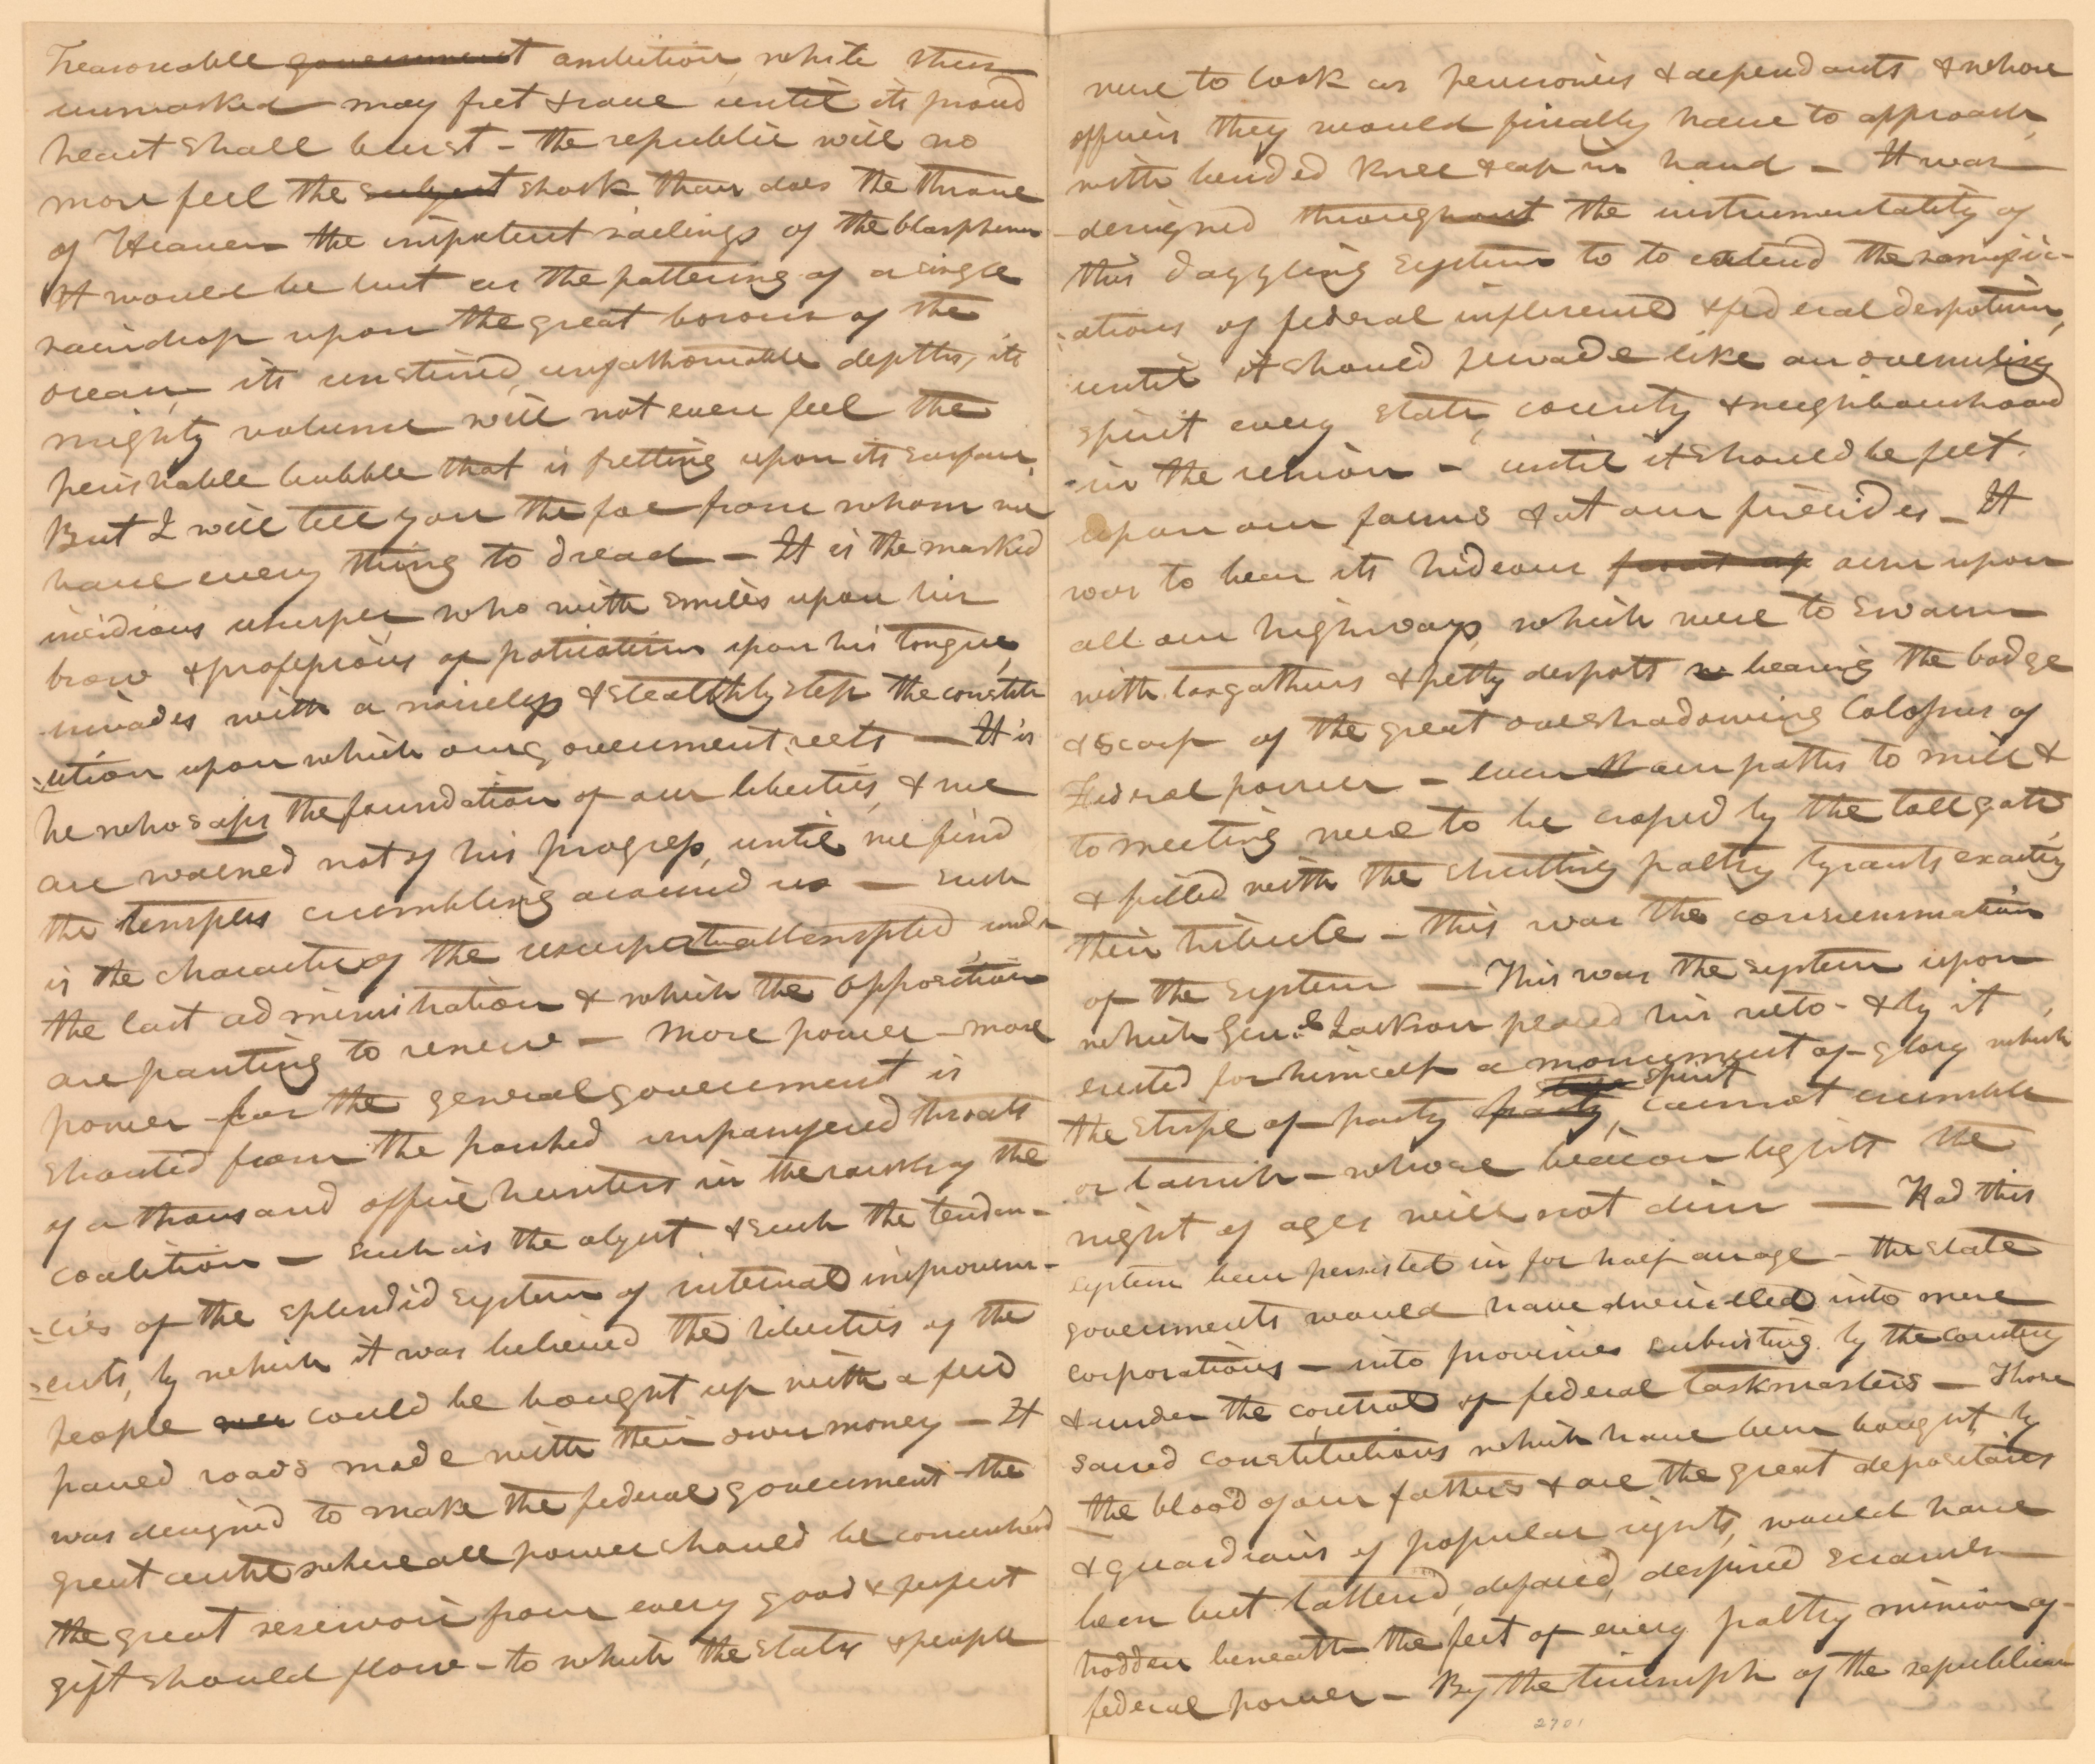 Treasonable government ambition, while thus
unmasked may fret & rave until its proud
heart shall burst - the republic will no
more feel the subject shock than does the throne
of Heaven the impotent railings of the blasphemer
It would be but as the pattering of a single
raindrop upon the great bosom of the
ocean, its unstirred, unfathomable depths, its
mighty volume will not even feel the
perishable bubble that is fretting upon its surface.
But I will tell you the foe from whom we
have every thing to dread - It is the masked
insidious usurper who with smiles upon his
brow & professions of patriotism upon his tongue,
invades with a noiseless & stealthy step the constit
ution upon which our government rests - It is
he who saps the foundation of our liberties, & we
are warned not of his progress, until we find
the temples crumbling around us - such
is the character of the usurpation attempted under
the last administration & which the opposition
are panting to renew - More power - more
power for the general government is
shouted from the parched unpampered throats
of a thousand office hunters in the ranks of the
coalition - such is the object & such the tenden-
-cies of the splendid system of internal improvem-
-ents, by which it was believed the liberties of the
people were could be bought up with a few
paved roads made with their own money - It
was designed to make the federal government the
great centre where all power should be concentrated
the great reservoir from every good & perfect
gift should flow - to which the states & people
were to look as pensioners & dependants & whose
officers they would finally have to approach,
with bended knee & cap in hand - It was
designed throughout the instrumentality of
this dazzling system to to extend the ramific-
-ations of federal influence & federal despotism,
until it should pervade like an overruling
spirit every state, county & neighbourhood
in the union - until it should be felt
upon our farms & at our firesides - It
was to bear its hideous front up our upon
all our highways, which were to swarm
with toll gatherers & petty despots bearing the badge
& scarf of the great overshadowing Colossus of
Federal power - even our paths to mill &
to meeting were to be crossed by the tollgate,
& filled with the strutting paltry tyrants exacting
their tribute - this was the consummation
of the system - This was the system upon
which Genl. Jackson placed his veto - & by it
erected for himself a monument of glory which
the strife of party party, spirit cannot crumble
or tarnish - whose beacon lights the
night of ages will not dim - Had this
system been persisted in for half an age - the state
governments would have dwindled into mere
corporations - into provinces subsisting by the courtesy
& under the control of federal taskmasters - Those
sacred constitutions which have been bought by
the blood of our fathers & are the great depositories
& guardians of popular rights, would have
been but tattered, defaced, despised
trodden beneath the feet of every paltry minion of
federal power - By the triumph of the republican
2701